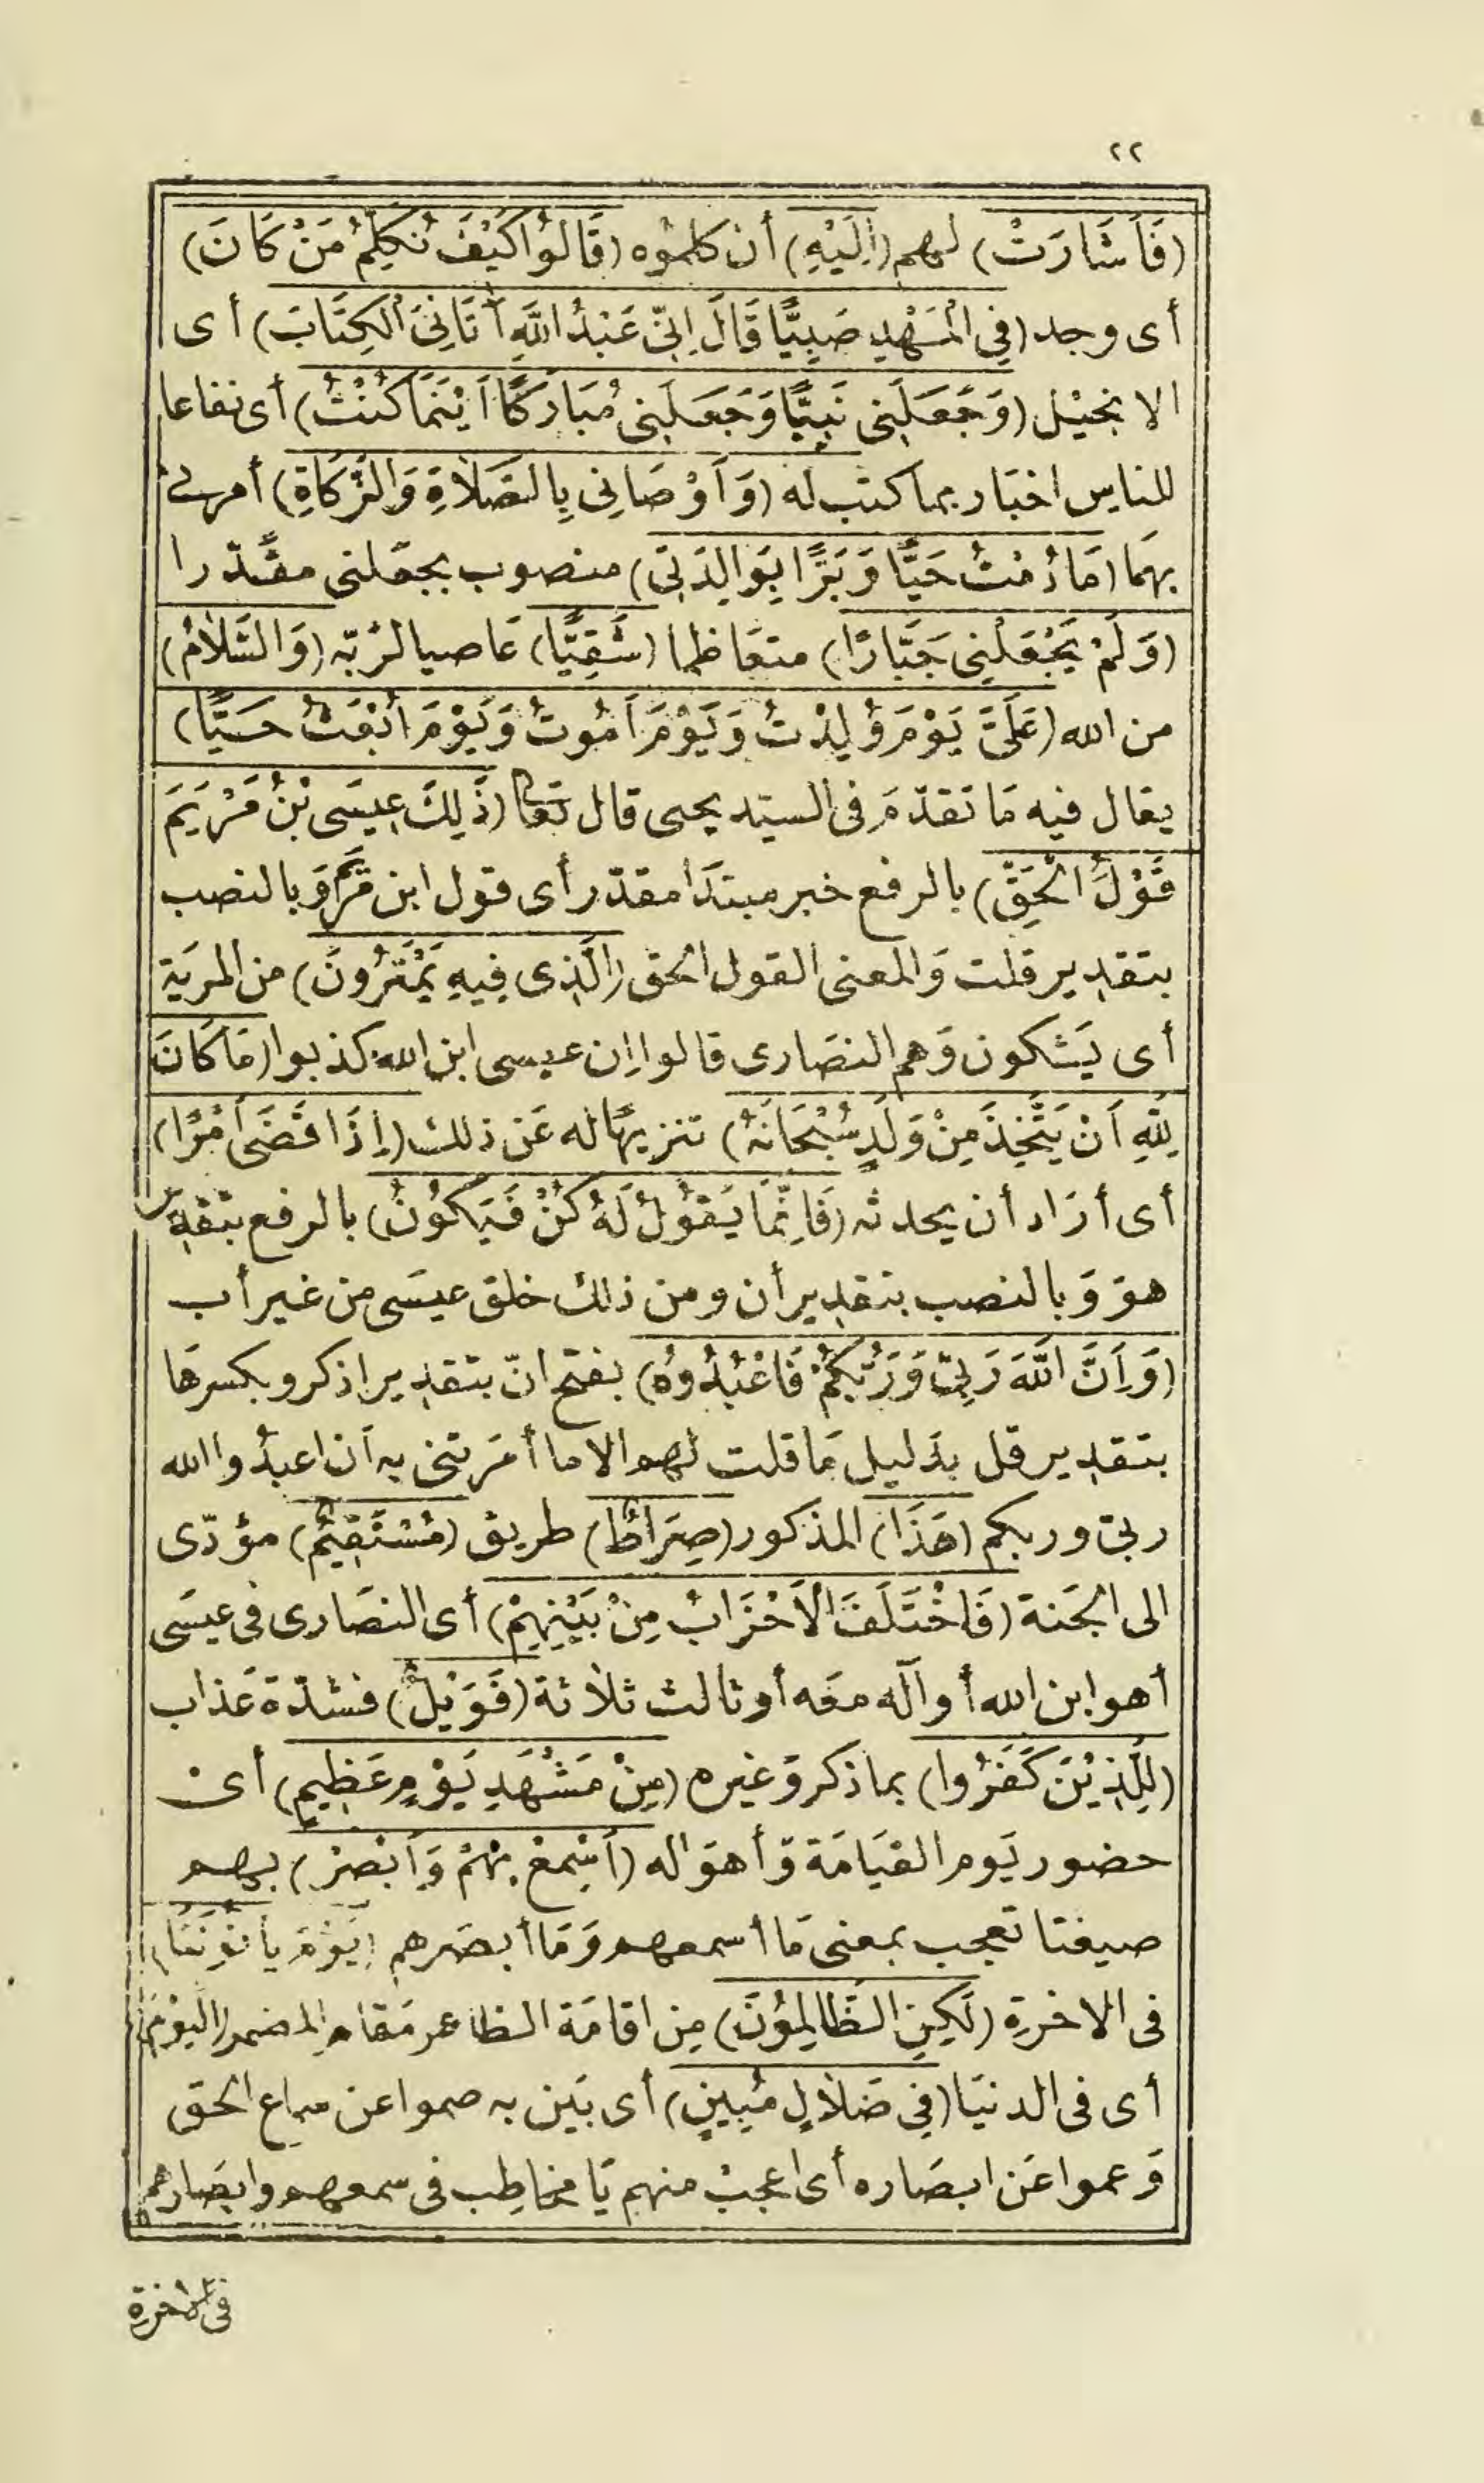 ٢٢
(فَأَشَارَتْ) لهم (إِلَيْهِ) أن كلموه (قَالُوا كَيْفَ نُكَلِّمُ مَنْ كَانَ)
أى وجد (فِي الْمَهْدِ صَبِيًّا قَالَ إِنِّي عَبْدُ اللَّهِ آتَانِيَ الْكِتَابَ) أى
الانجيل (وَجَعَلَنِي نَبِيًّا وَجَعَلَنِي مُبَارَكًا أَيْنَمَا كُنْتُ) أى نفاعا
للناس اخبار بما كتب له (وَأَوْصَانِي بِالصَّلَاةِ وَالزَّكَاةِ) أمرنى
بهما (مَا دُمْتُ حَيًّا وَبَرًّا بِوَالِدَتِي) منصوب بجعلنى مقدّرا
(وَلَمْ يَجْعَلْنِي جَبَّارًا) متعاظما (شَقِيًّا) عاصيا لربّه (وَالسَّلَامُ)
من الله (عَلَيَّ يَوْمَ وُلِدْتُ وَيَوْمَ أَمُوتُ وَيَوْمَ أُبْعَثُ حَيًّا)
يقال فيه ما تقدّم فى السيّد يحيى قال تعالى (ذَلِكَ عِيسَى بْنُ مَرْيَمَ
قَوْلُ الْحَقِّ) بالرفع خبر مبتدأ مقدّر أى قول ابن مريم وبالنصب
بتقدير قلت والمعنى القول الحق (الَّذِي فِيهِ يَمْتَرُونَ) من المرية
أى يشكون وهم النصارى قالوا إن عيسى ابن الله كذبوا (مَا كَانَ
لِلَّهِ أَنْ يَتَّخِذَ مِنْ وَلَدٍ سُبْحَانَهُ) تنزيها له عن ذلك (إِذَا قَضَى أَمْرًا)
أى أراد أن يحدثه (فَإِنَّمَا يَقُولُ لَهُ كُنْ فَيَكُونُ) بالرفع بتقدير
هو وبالنصب بتقدير أن ومن ذلك خلق عيسى من غير أب
(وَإِنَّ اللَّهَ رَبِّي وَرَبُّكُمْ فَاعْبُدُوهُ) بفتح انّ بتقدير اذكر وبكسرها
بتقدير قل بدليل ما قلت لهم الا ما أمرتنى به أن اعبدوا الله
ربى وربكم (هَذَا) المذكور (صِرَاطٌ) طريق (مُسْتَقِيمٌ) مؤدّى
الى الجنة (فَاخْتَلَفَ الْأَحْزَابُ مِنْ بَيْنِهِمْ) أى النصارى فى عيسى
أهو ابن الله أو آله معه أو ثالث ثلاثة (فَوَيْلٌ) فشدّة عذاب
(لِلَّذِينَ كَفَرُوا) بما ذكر وغيره (مِنْ مَشْهَدِ يَوْمٍ عَظِيمٍ) أى
حضور يوم القيامة وأهواله (أَسْمِعْ بِهِمْ وَأَبْصِرْ) بهم
صيغتا تعجب بمعنى ما أسمعهم وما أبصرهم (يَوْمَ يَأْتُونَنَا)
فى الاخرة (لَكِنِ الظَّالِمُونَ) من اقامة الظاهر مقام المضمر (الْيَوْمَ)
أى فى الدنيا (فِي ضَلَالٍ مُبِينٍ) أى بيّن به صموا عن سماع الحق
وعموا عن ابصاره أى اعجب منهم يا مخاطب فى سمعهم وابصارهم
فى الاخرة